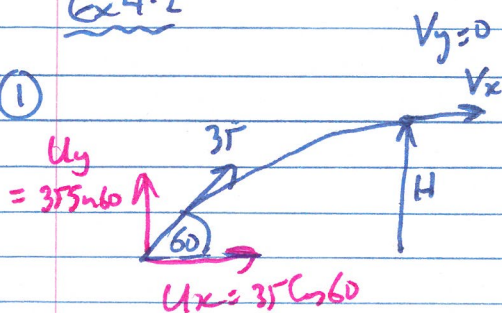 Ex 4.2
Vy=0
①
Vx
35
Uy
= 35Sin60
H
60
Ux = 35Cos60